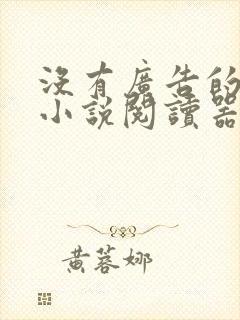 没有廣告的
小說閱讀器
黃蓉娜